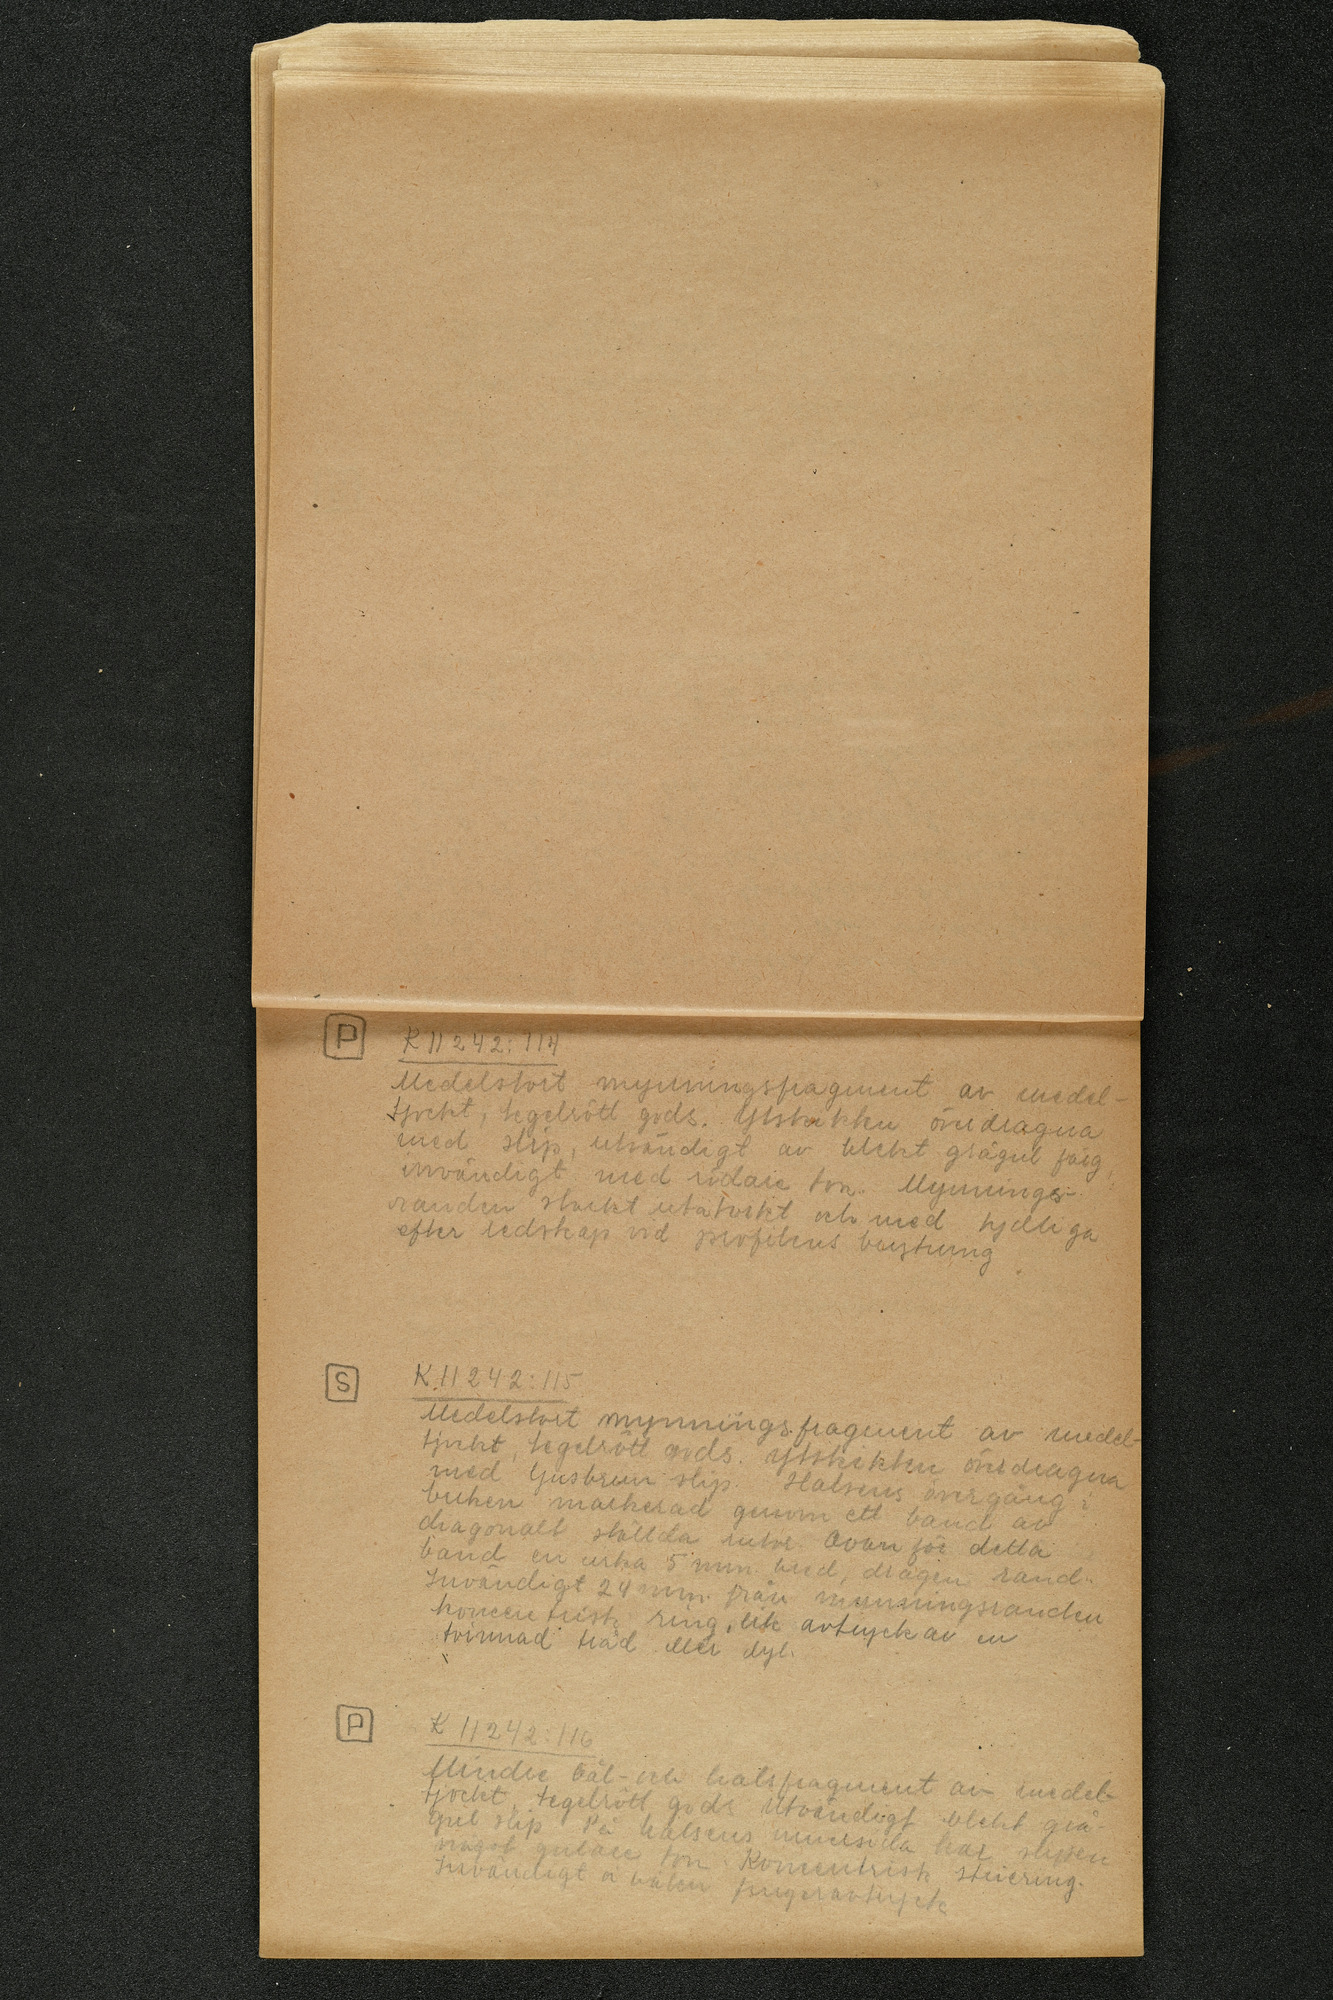 P
K 11242:114
Medelstort mynningsfragment av medel-
tjockt, tegelrött gods. Ytskikken överdragna
med slip, utvändigt av blekt grågul färg,
invändigt med rödare ton. Mynnings-
randen starkt utåtvikt och med tydliga
efter redskap vid profilens
S
K 11242:115
Medelstort mynningsfragment av medel-
tjockt, tegelrött gods. Ytskikken överdragna
med ljusbrun slip. Halsens övergång i
buken markerad genom ett band av
diagonalt ställda Ovanför detta
band en cirka 5 mm bred, dragen rand.
Invändigt 24 mm från mynningsranden
koncentrisk ring, lik avtryck av en
tvinnad tråd eller dyl.
P
K 11242:116
Mindre bål- och halsfragment av medel-
tjockt, tegelrött gods Utvändigt blekt grå-
gul slip På halsens innersida har slipen
något gulare ton Koncentrisk striering.
Invändigt å bålen fingeravtryck